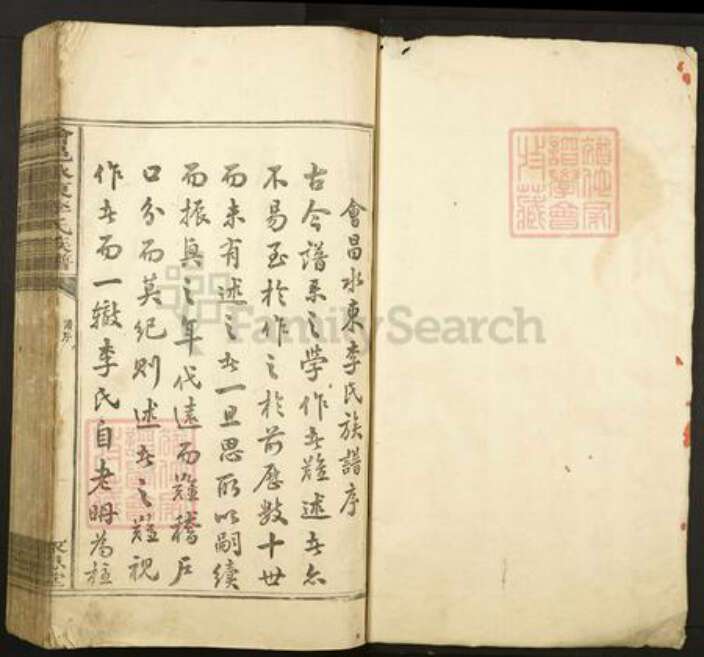 會昌水東李氏族譜序
古今譜系之學作者難述者亦
不易至於作之於前歷數十世
而未有述之者一旦思所以嗣續
而振興之年代遠而難稽戶
口分而莫紀則述者之難視
作者而一轍李氏自老聃為柱
會邑水東李氏族譜
譜序
FamilySearch